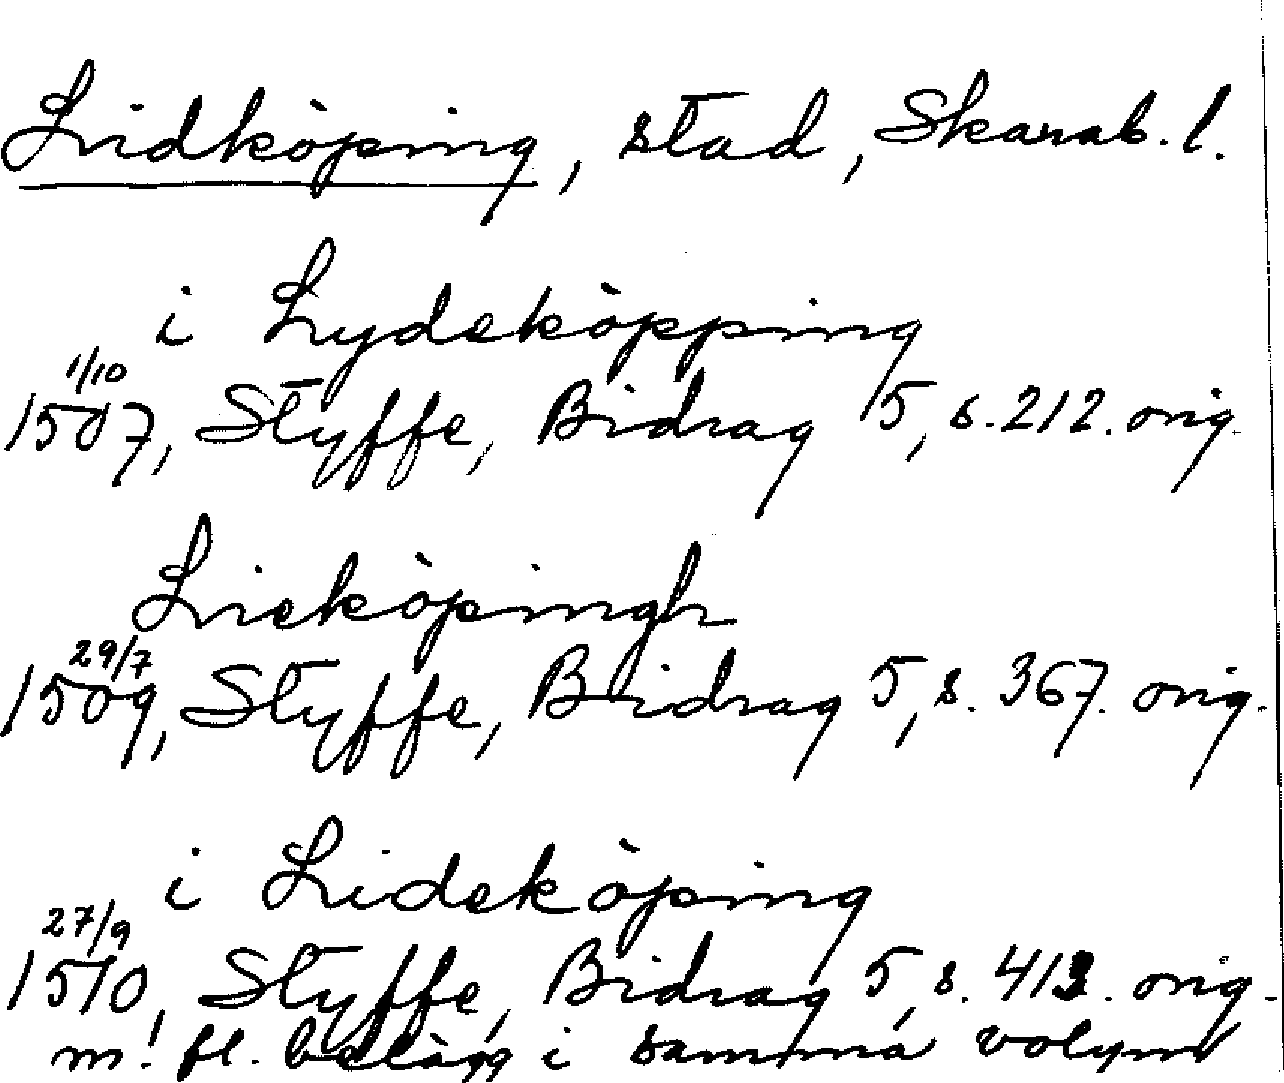 Lidköping, stad, Skarab. l.
i Lydeköpping
1/10
1507, Styffe, Bidrag 5, s. 212. orig.
Lieköpingh
29/7
1509, Styffe, Bidrag 5, s. 367. orig.
i Lideköping
27/9
1510, Styffe, Bidrag 5, s. orig.
m. fl. belägg i samma volym